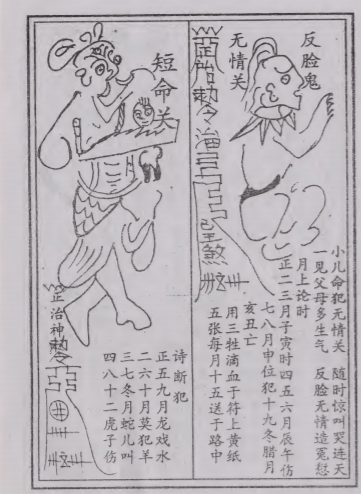 反脸鬼
无情关
小儿命犯无情关 随时惊叫哭连天
一见父母多生气 反脸无情造冤愆
月上论时
正二三月子寅时四五六月辰午伤
七八月申位犯十九冬腊月
亥丑亡
用三牲滴血于符上黄纸
五张每月十五送于路中
敕令
煞
短命关
诗断犯
正五九月龙戏水
二六十月莫犯羊
三七冬月蛇儿叫
四八十二虎子伤
治神